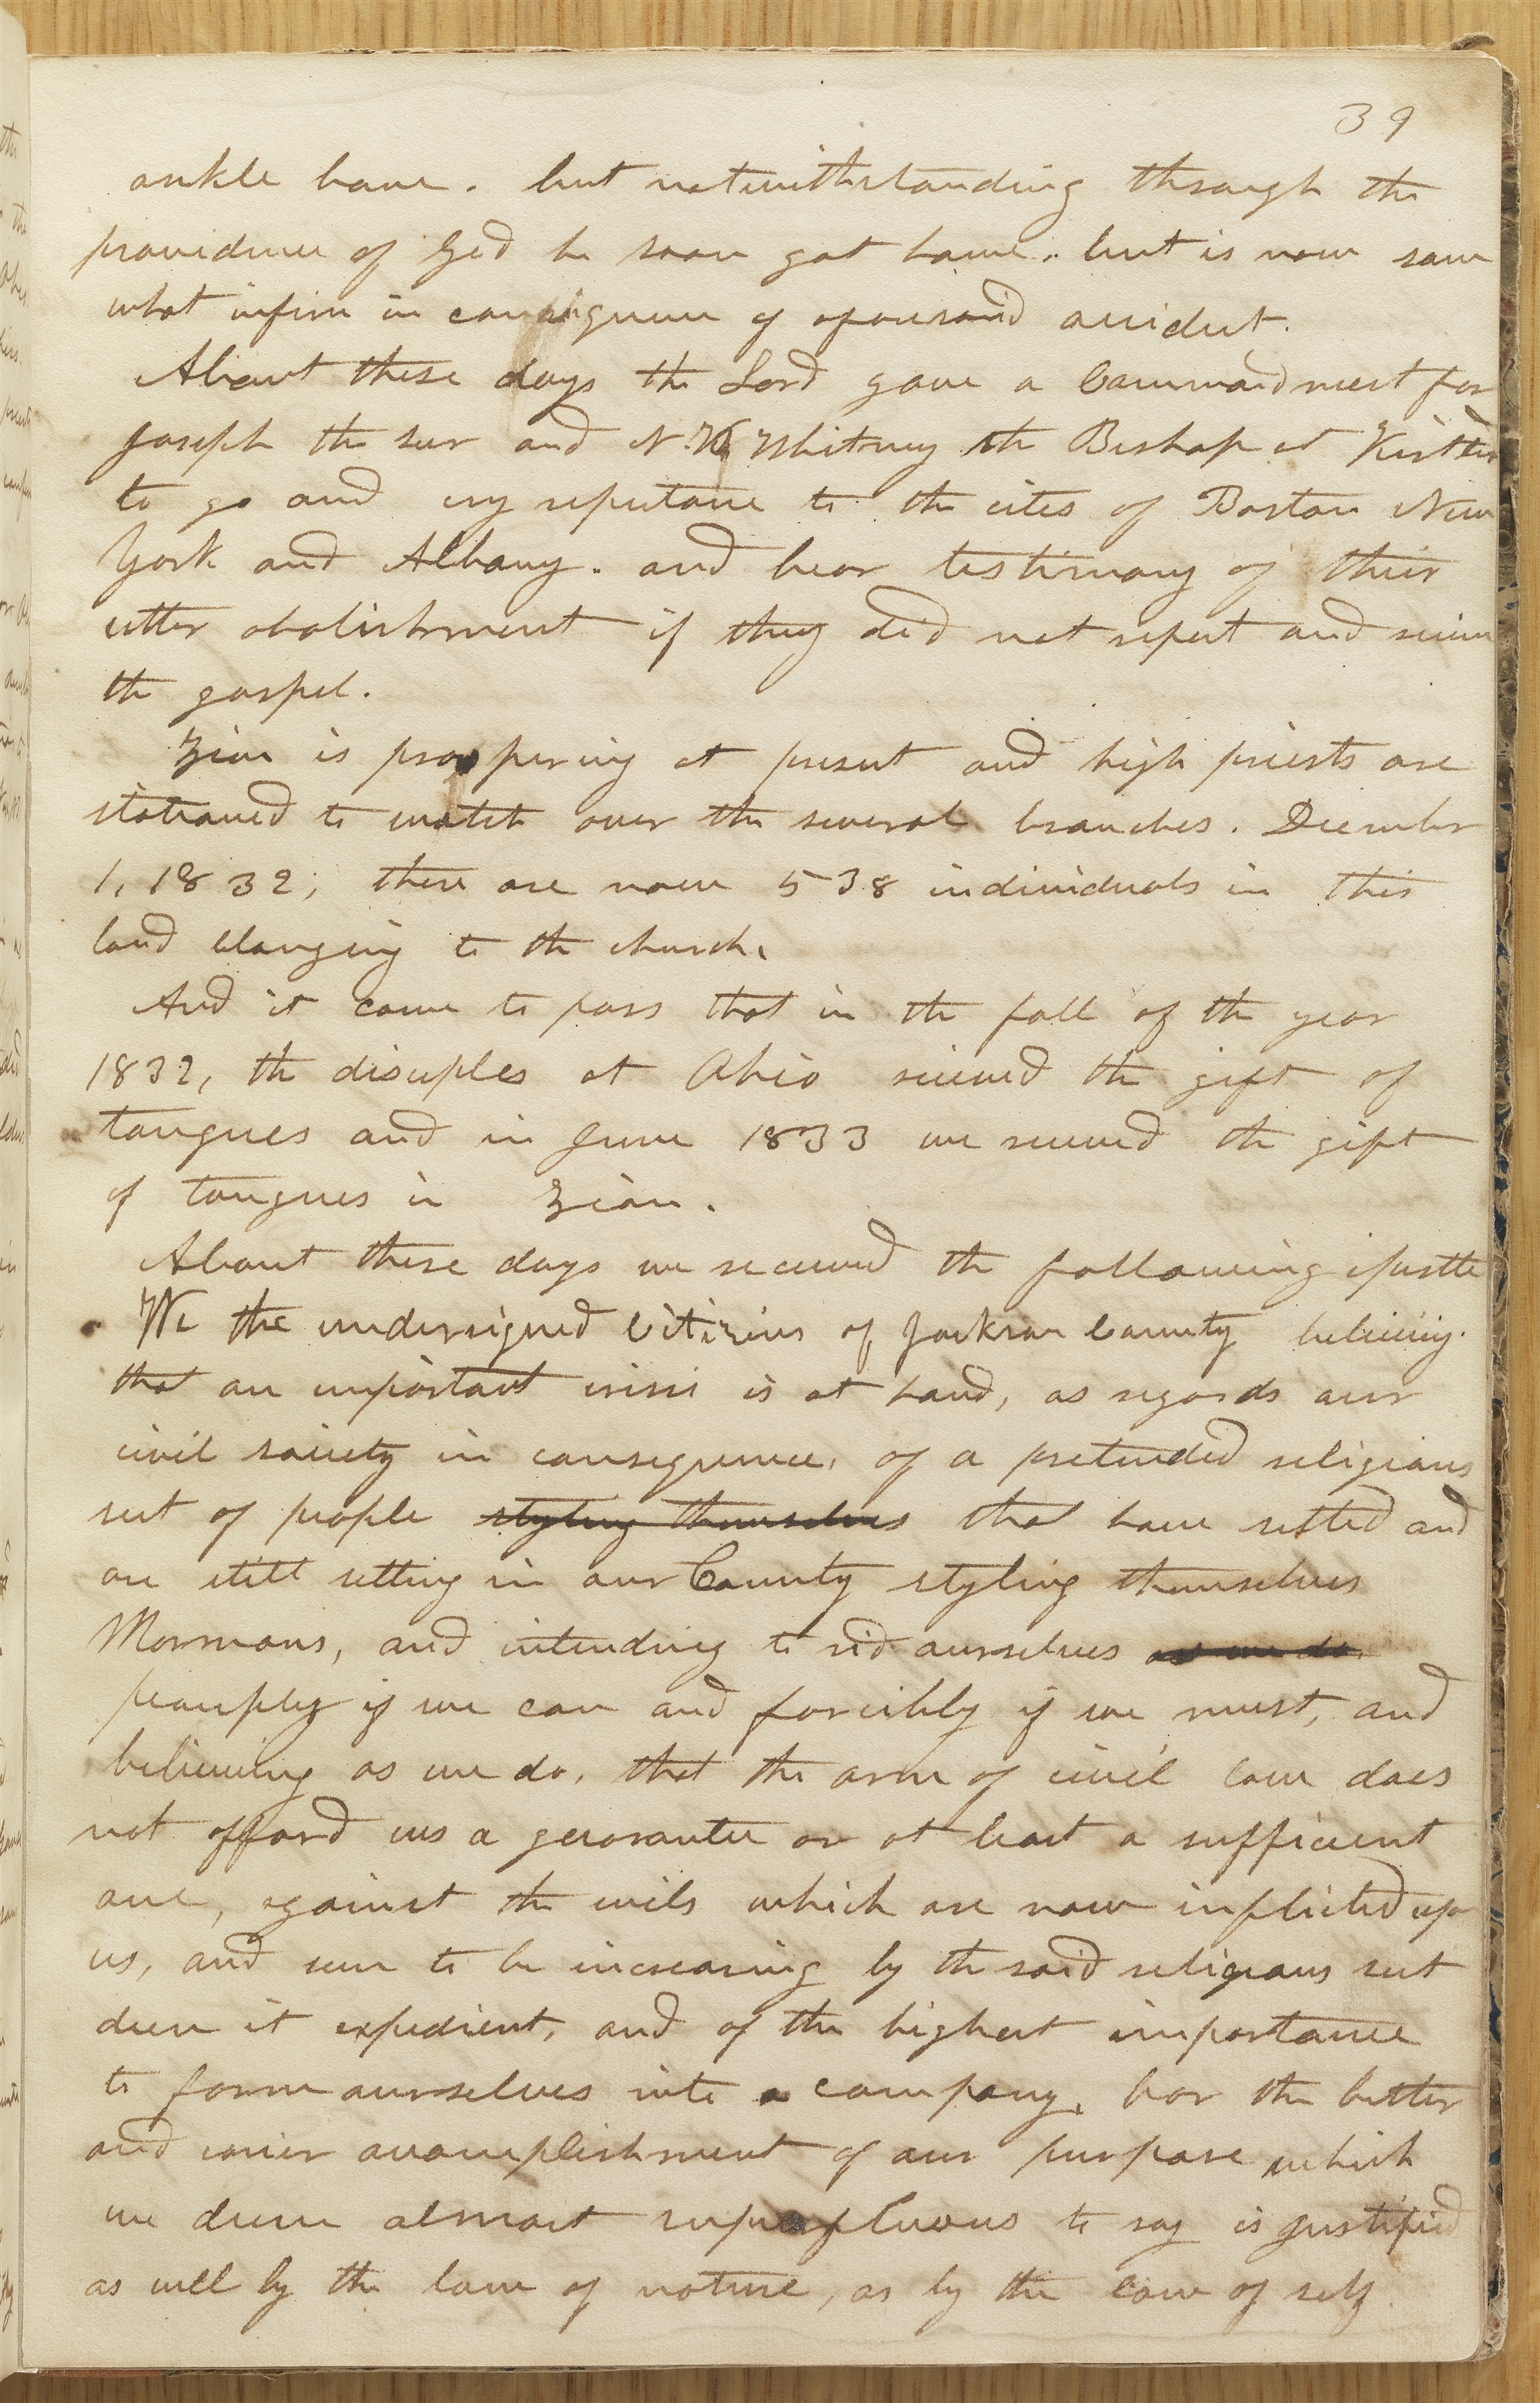 39
ankle bone. but notwithstanding through the
providence of God he soon got home. but is now some
what infirm in consequence of aforesaid accident.
About these days the Lord gave a Commandment for
Joseph the seer and N. K. Whitney the Bishop at Kirtland
to go and cry repentance to the cites of Boston New
York and Albany. and bear testimony of their
utter abolishment if they did not repent and receive
the gospel.
Zion is prospering at present and high priests are
stationed to watch over the several branches. December
1, 1832, there are now 538 individuals in this
land belonging to the church.
And it came to pass that in the fall of the year
1832, the disciples at Ohio received the gift of
tongues and in June 1833 we received the gift
of tongues in Zion.
About these days we received the following epistle
We the undersigned Citizens of Jackson County believing
that an important crisis is at hand, as regards our
civil society in consequence, of a pretended religious
sect of people styling themselves that have settled and
are still settling in our County styling themselves
Mormons, and intending to rid ourselves as we do
peacebly if we can and forcibly if we must, and
believing as we do, that the arm of civil law does
not afford us a gerarantee or at least a sufficient
one, against the evils which are now inflicted upon
us, and seem to be increasing by the said religious sect
deem it expedient, and of the highest importance
to form ourselves into a company, for the better
and easier accomplishment of our purpose which
we deem almost superfluous to say is justified
as well by the law of nature, as by the law of self